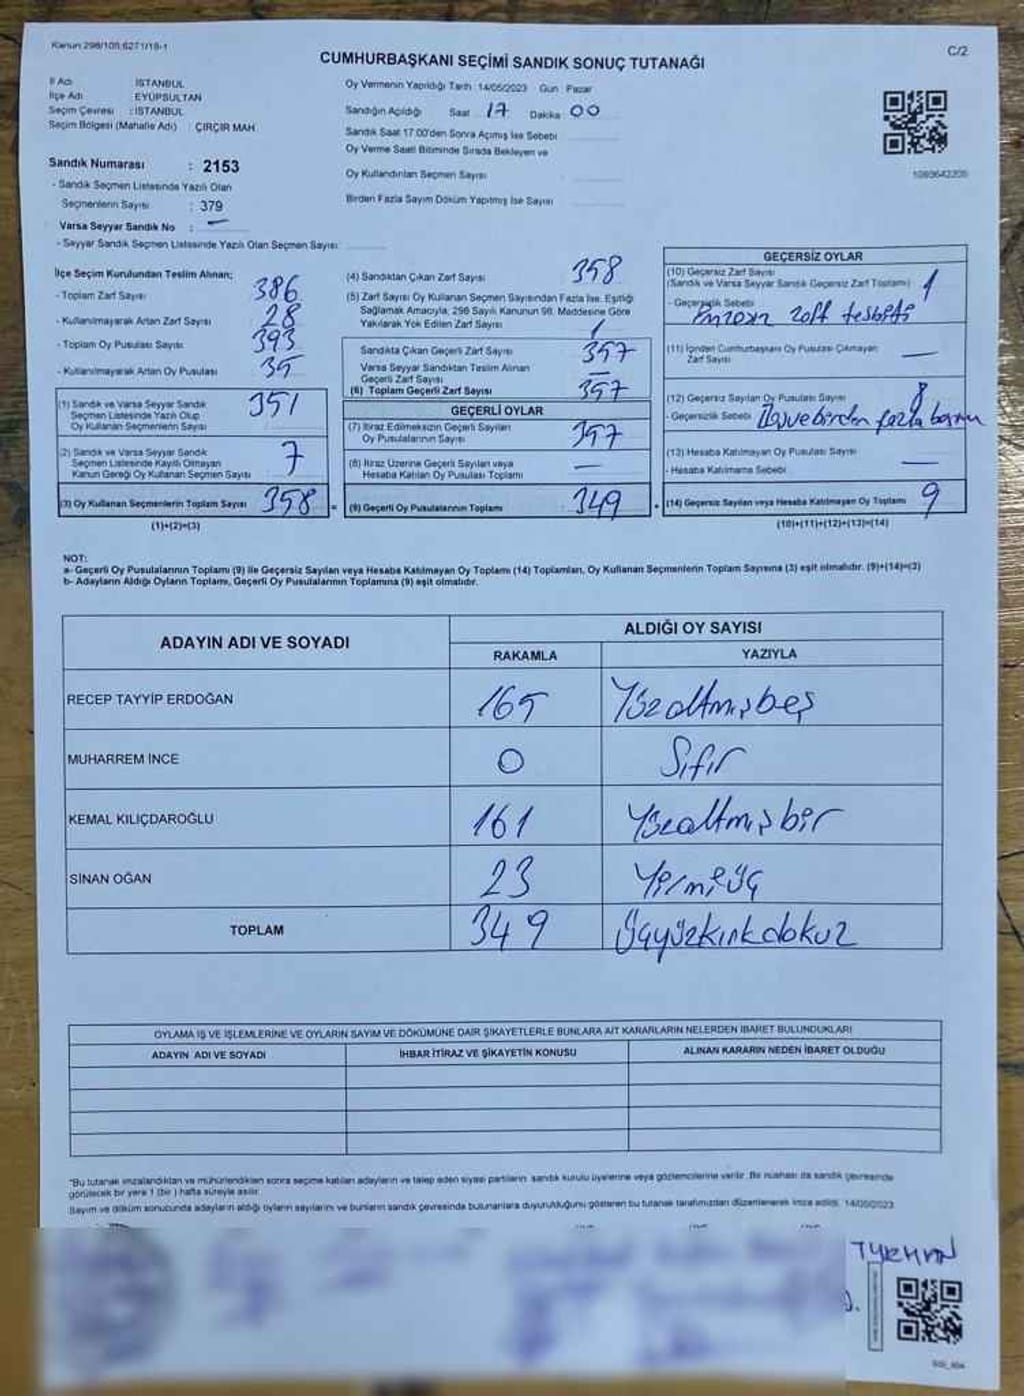 Kanun 298/105;6271/19-1
C/2
CUMHURBAŞKANI SEÇİMİ SANDIK SONUÇ TUTANAĞI
İl Adı : İSTANBUL
İlçe Adı : EYÜPSULTAN
Seçim Çevresi : İSTANBUL
Seçim Bölgesi (Mahalle Adı) : ÇIRÇIR MAH.
Sandık Numarası : 2153
- Sandık Seçmen Listesinde Yazılı Olan
Seçmenlerin Sayısı : 379
Varsa Seyyar Sandık No : -
- Seyyar Sandık Seçmen Listesinde Yazılı Olan Seçmen Sayısı:
Oy Vermenin Yapıldığı Tarih : 14/05/2023 Gün : Pazar
Sandığın Açıldığı Saat 17 Dakika 00
Sandık Saat 17:00'den Sonra Açımış İse Sebebi
Oy Verme Saati Bitiminde Sırada Bekleyen ve
Oy Kullandırılan Seçmen Sayısı
Birden Fazla Sayım Döküm Yapılmış İse Sayısı
İlçe Seçim Kurulundan Teslim Alınan;
- Toplam Zarf Sayısı 386
- Kullanılmayarak Artan Zarf Sayısı 28
- Toplam Oy Pusulası Sayısı 393
- Kullanılmayarak Artan Oy Pusulası 35
(1) Sandık ve Varsa Seyyar Sandık
Seçmen Listesinde Yazılı Olup
Oy Kullanan Seçmenlerin Sayısı 351
(2) Sandık ve Varsa Seyyar Sandık
Seçmen Listesinde Kayıtlı Olmayan
Kanun Gereği Oy Kullanan Seçmen Sayısı 7
(3) Oy Kullanan Seçmenlerin Toplam Sayısı 358
(1)+(2)=(3)
(4) Sandıktan Çıkan Zarf Sayısı 358
(5) Zarf Sayısı Oy Kullanan Seçmen Sayısından Fazla İse, Eşitliği
Sağlamak Amacıyla; 298 Sayılı Kanunun 98. Maddesine Göre
Yakılarak Yok Edilen Zarf Sayısı
Sandıkta Çıkan Geçerli Zarf Sayısı 357
Varsa Seyyar Sandıktan Teslim Alınan
Geçerli Zarf Sayısı -
(6) Toplam Geçerli Zarf Sayısı 357
GEÇERLİ OYLAR
(7) İtiraz Edilmeksizin Geçerli Sayılan
Oy Pusulalarının Sayısı
(8) İtiraz Üzerine Geçerli Sayılan veya
Hesaba Katılan Oy Pusulası Toplamı -
= (9) Geçerli Oy Pusulalarının Toplamı 349
GEÇERSİZ OYLAR
(10) Geçersiz Zarf Sayısı
(Sandık ve Varsa Seyyar Sandık Geçersiz Zarf Toplamı) 1
- Geçersizlik Sebebi
(11) İçinden Cumhurbaşkanı Oy Pusulası Çıkmayan
Zarf Sayısı -
(12) Geçersiz Sayılan Oy Pusulası Sayısı 8
- Geçersizlik Sebebi
(13) Hesaba Katılmayan Oy Pusulası Sayısı
- Hesaba Katılmama Sebebi -
+ (14) Geçersiz Sayılan veya Hesaba Katılmayan Oy Toplamı 9
(10)+(11)+(12)+(13)=(14)
NOT:
a- Geçerli Oy Pusulalarının Toplamı (9) ile Geçersiz Sayılan veya Hesaba Katılmayan Oy Toplamı (14) Toplamları, Oy Kullanan Seçmenlerin Toplam Sayısına (3) eşit olmalıdır. (9)+(14)=(3)
b- Adayların Aldığı Oyların Toplamı, Geçerli Oy Pusulalarının Toplamına (9) eşit olmalıdır.
ADAYIN ADI VE SOYADI ALDIĞI OY SAYISI
RAKAMLA YAZIYLA
RECEP TAYYİP ERDOĞAN 165 Yüzaltmışbeş
MUHARREM İNCE 0 Sıfır
KEMAL KILIÇDAROĞLU 161 Yüzaltmışbir
SİNAN OĞAN 23 Yirmiüç
TOPLAM 349 Üçyüzkırkdokuz
OYLAMA İŞ VE İŞLEMLERİNE VE OYLARIN SAYIM VE DÖKÜMÜNE DAİR ŞİKAYETLERLE BUNLARA AİT KARARLARIN NELERDEN İBARET BULUNDUKLARI
ADAYIN ADI VE SOYADI İHBAR İTİRAZ VE ŞİKAYETİN KONUSU ALINAN KARARIN NEDEN İBARET OLDUĞU
"Bu tutanak imzalandıktan ve mühürlendikten sonra seçime katılan adayların ve talep eden siyasi partilerin sandık kurulu üyelerine veya gözlemcilerine verilir. Bir nüshası da sandık çevresinde
görülecek bir yere 1 (bir ) hafta süreyle asılır.
Sayım ve döküm sonucunda adayların aldığı oyların sayılarını ve bunların sandık çevresinde bulunanlara duyurulduğunu gösteren bu tutanak tarafımızdan düzenlenerek imza edildi. 14/05/2023